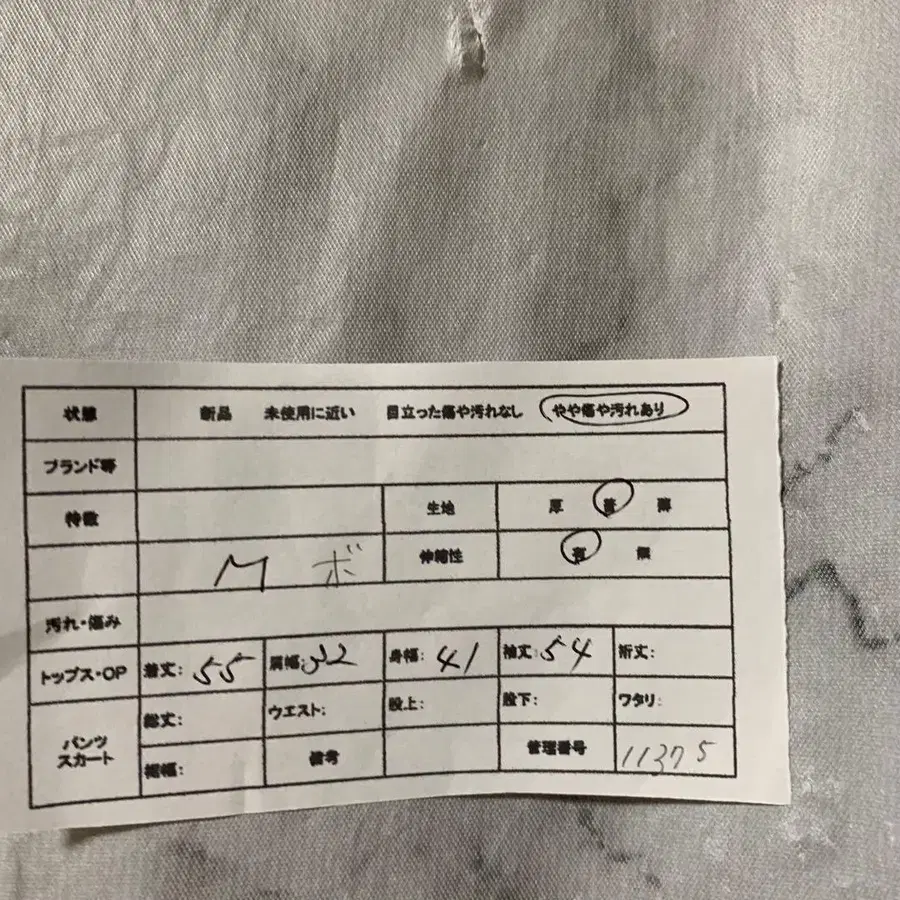 状態 新品 未使用に近い 目立った傷や汚れなし やや傷や汚れあり
ブランド等
特徴 生地 厚 普 薄
M ボ 伸縮性 有 無
汚れ・傷み
トップス・OP 着丈: 55 肩幅: 32 身幅: 41 袖丈: 54 裄丈:
パンツ スカート 総丈: ウエスト: 股上: 股下: ワタリ:
裾幅: 備考 管理番号 11375